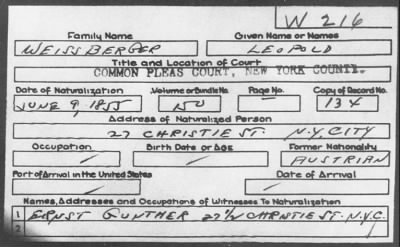 W 216
Family Name Given Name or Names
WEISSBERGER LEOPOLD
Title and Location of Court
COMMON PLEAS COURT, NEW YORK COUNTY.
Date of Naturalization Volume or Bundle No. Page No. Copy of Record No.
JUNE 9, 1855 150 134
Address of Naturalized Person
27 CHRISTIE ST. N.Y. CITY
Occupation Birth Date or Age Former Nationality
AUSTRIAN
Port of Arrival in the United States Date of Arrival
Names, Addresses and Occupations of Witnesses To Naturalization
1 ERNST GUNTHER 27 1/2 CHRISTIE ST. N.Y.C.
2